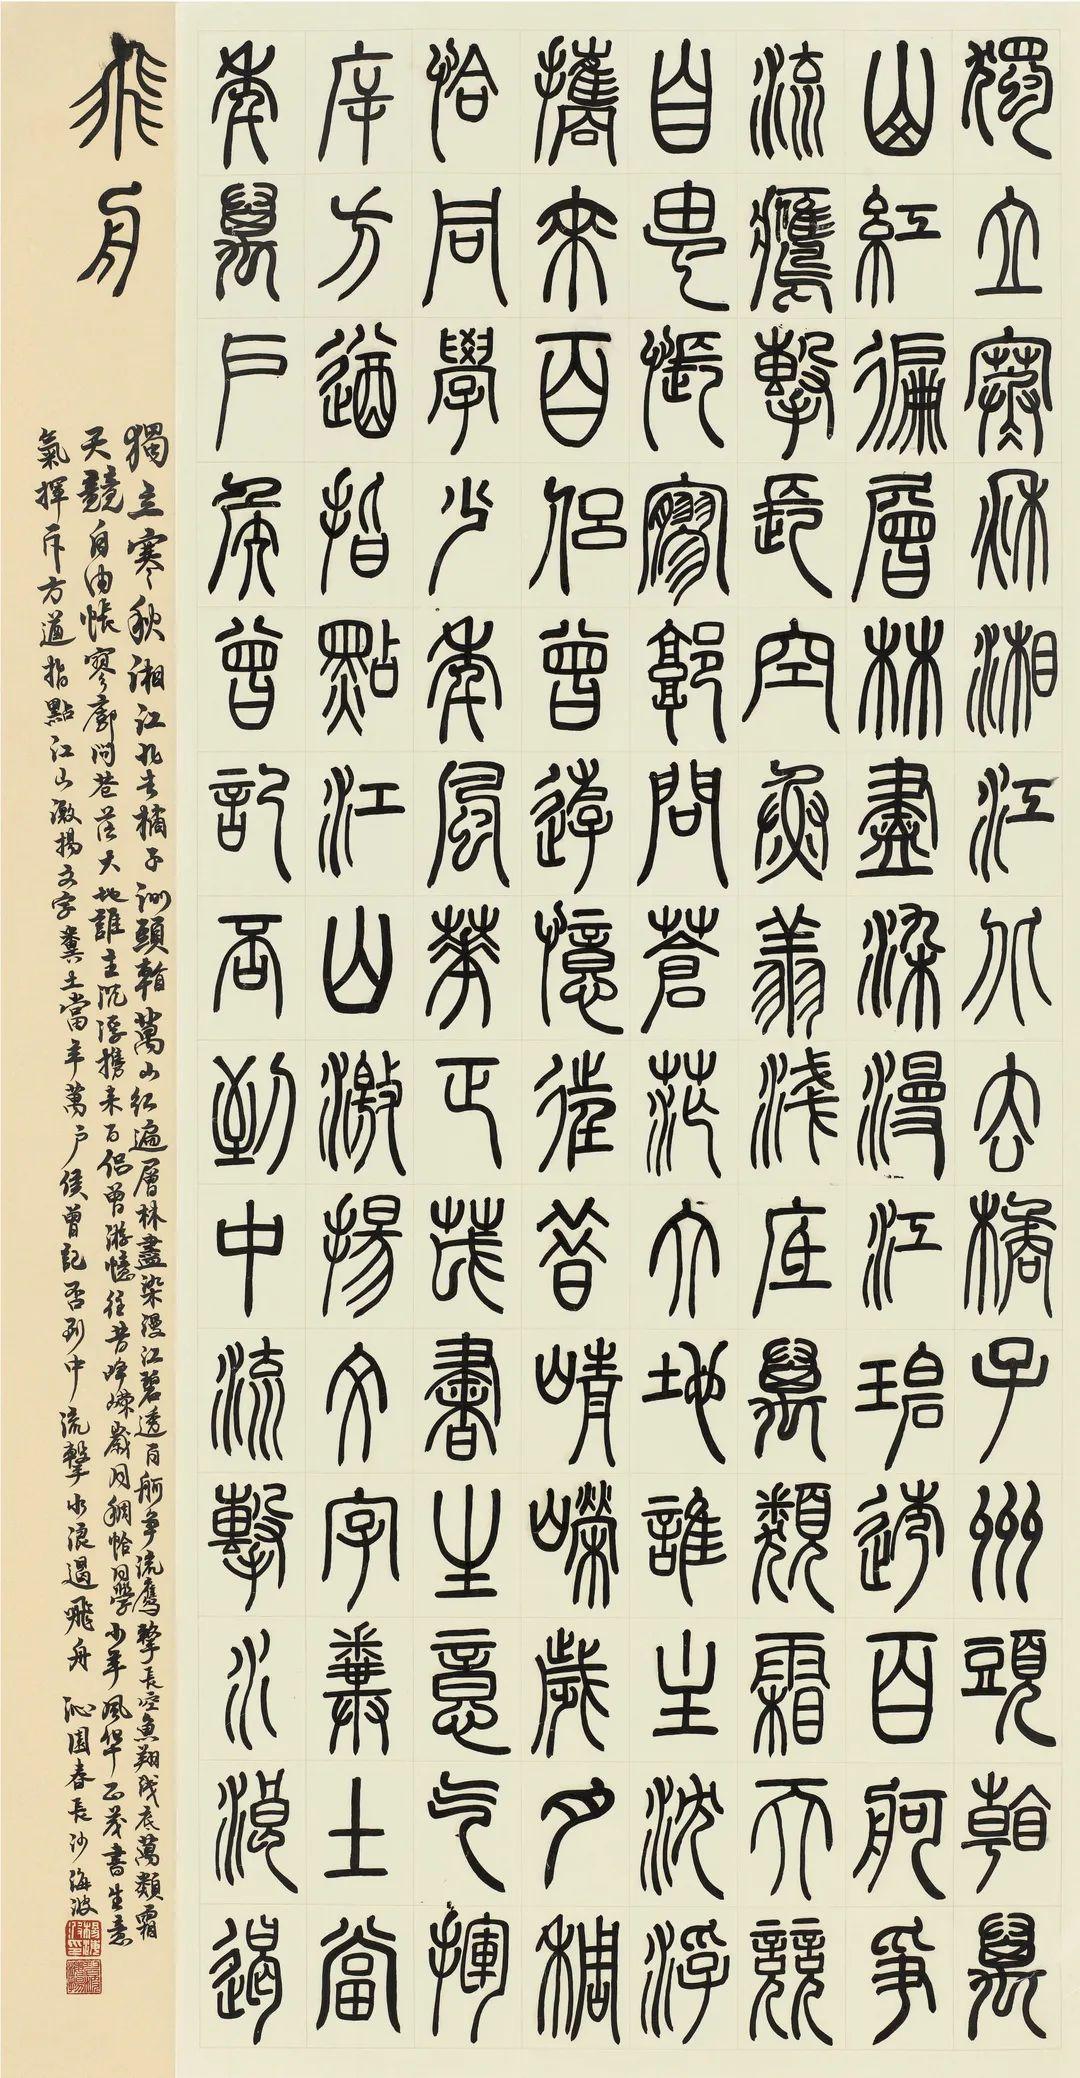 獨立寒秋湘江北去橘子州頭看萬
山紅徧層林盡染漫江碧透百舸爭
流鷹擊長空魚翔淺底萬類霜天競
自由悵寥廓問蒼茫大地誰主沈浮
攜來百侶曾遊憶往昔崢嶸歲月稠
恰同學少年風華正茂書生意气揮
斥方遒指點江山激揚文字糞土當
年萬戶侯曾記否到中流擊水浪遏
飛舟
獨立寒秋湘江北去橘子洲頭看萬山紅遍層林盡染漫江碧透百舸爭流鷹擊長空魚翔淺底萬類霜
天競自由悵寥廓問蒼茫大地誰主沉浮攜来百侶曾游憶往昔崢嶸歲月稠恰同學少年風華正茂書生意
氣揮斥方遒指點江山激揚文字糞土當年萬戶侯曾記否到中流擊水浪遏飛舟 沁園春長沙 海波